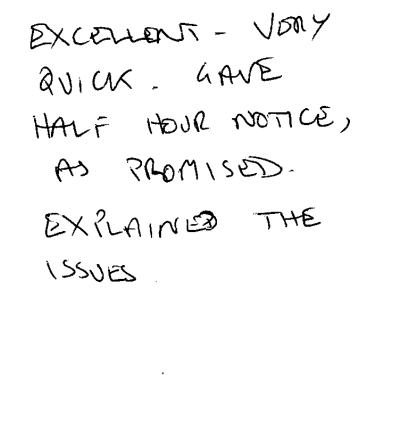 EXCELLENT - VERY
QUICK. GAVE
HALF HOUR NOTICE,
AS PROMISED.
EXPLAINED THE
ISSUES